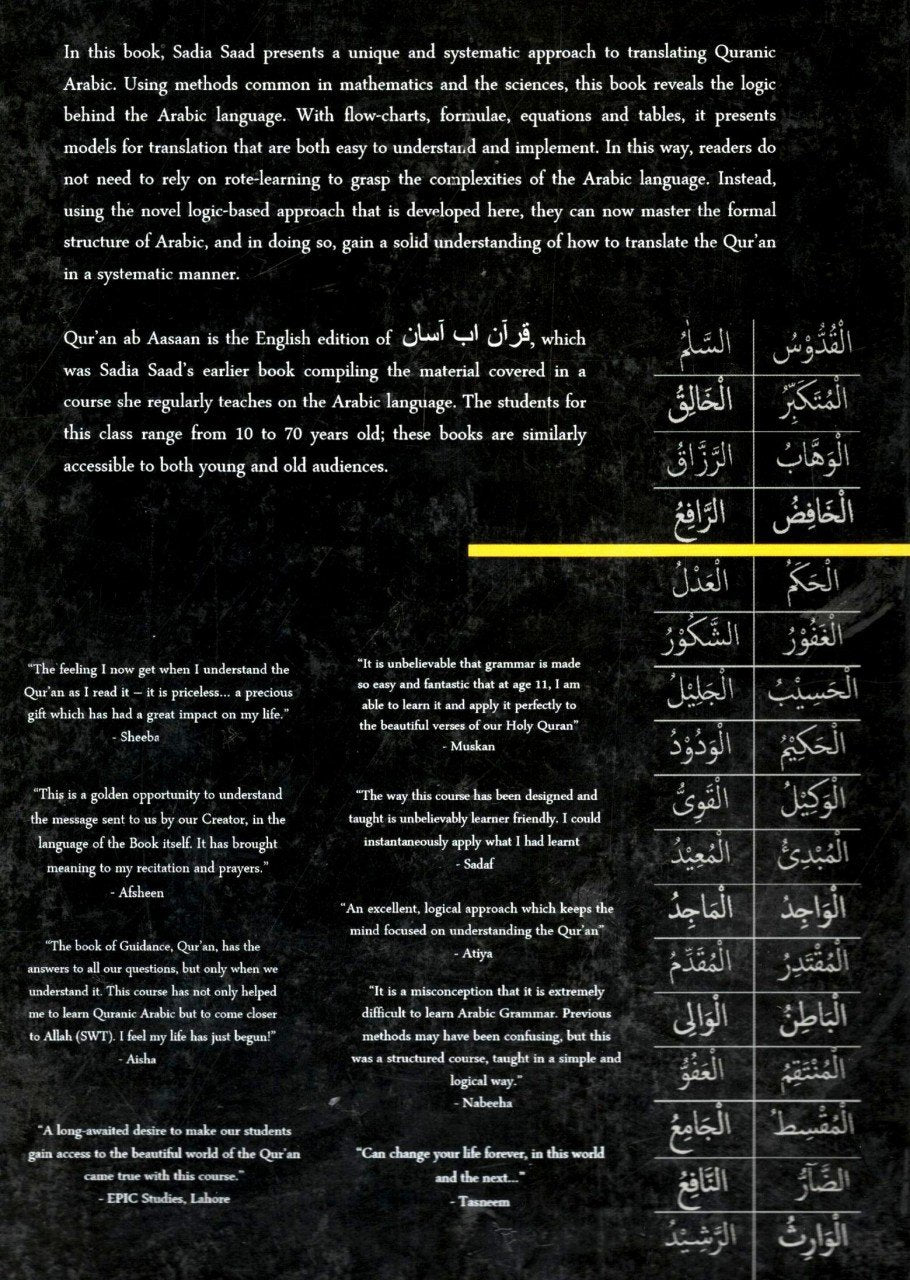 In this book, Sadia Saad presents a unique and systematic approach to translating Quranic
Arabic. Using methods common in mathematics and the sciences, this book reveals the logic
behind the Arabic language. With flow-charts, formulae, equations and tables, it presents
models for translation that are both easy to understand and implement. In this way, readers do
not need to rely on rote-learning to grasp the complexities of the Arabic language. Instead,
using the novel logic-based approach that is developed here, they can now master the formal
structure of Arabic, and in doing so, gain a solid understanding of how to translate the Qur'an
in a systematic manner.
Qur'an ab Aasaan is the English edition of قرآن اب آسان, which
was Sadia Saad's earlier book compiling the material covered in a
course she regularly teaches on the Arabic language. The students for
this class range from 10 to 70 years old; these books are similarly
accessible to both young and old audiences.
"The feeling I now get when I understand the
Qur'an as I read it – it is priceless... a precious
gift which has had a great impact on my life."
- Sheeba
"This is a golden opportunity to understand
the message sent to us by our Creator, in the
language of the Book itself. It has brought
meaning to my recitation and prayers."
- Afsheen
"The book of Guidance, Qur'an, has the
answers to all our questions, but only when we
understand it. This course has not only helped
me to learn Quranic Arabic but to come closer
to Allah (SWT). I feel my life has just begun!"
- Aisha
"A long-awaited desire to make our students
gain access to the beautiful world of the Qur'an
came true with this course."
- EPIC Studies, Lahore
"It is unbelievable that grammar is made
so easy and fantastic that at age 11, I am
able to learn it and apply it perfectly to
the beautiful verses of our Holy Quran"
- Muskan
"The way this course has been designed and
taught is unbelievably learner friendly. I could
instantaneously apply what I had learnt
- Sadaf
"An excellent, logical approach which keeps the
mind focused on understanding the Qur'an"
- Atiya
"It is a misconception that it is extremely
difficult to learn Arabic Grammar. Previous
methods may have been confusing, but this
was a structured course, taught in a simple and
logical way."
- Nabeeha
"Can change your life forever, in this world
and the next..."
- Tasneem
الْقُدُّوْسُ السَّلٰمُ
الْمُتَكَبِّرُ الْخَالِقُ
الْوَهَّابُ الرَّزَّاقُ
الْخَافِضُ الرَّافِعُ
الْحَكَمُ الْعَدْلُ
الْغَفُوْرُ الشَّكُوْرُ
الْحَسِيْبُ الْجَلِيْلُ
الْحَكِيْمُ الْوَدُوْدُ
الْوَكِيْلُ الْقَوِيُّ
الْمُبْدِئُ الْمُعِيْدُ
الْوَاجِدُ الْمَاجِدُ
الْمُقْتَدِرُ الْمُقَدِّمُ
الْبَاطِنُ الْوَالِي
الْمُنْتَقِمُ الْعَفُوُّ
الْمُقْسِطُ الْجَامِعُ
الضَّآرُّ النَّافِعُ
الْوَارِثُ الرَّشِيْدُ